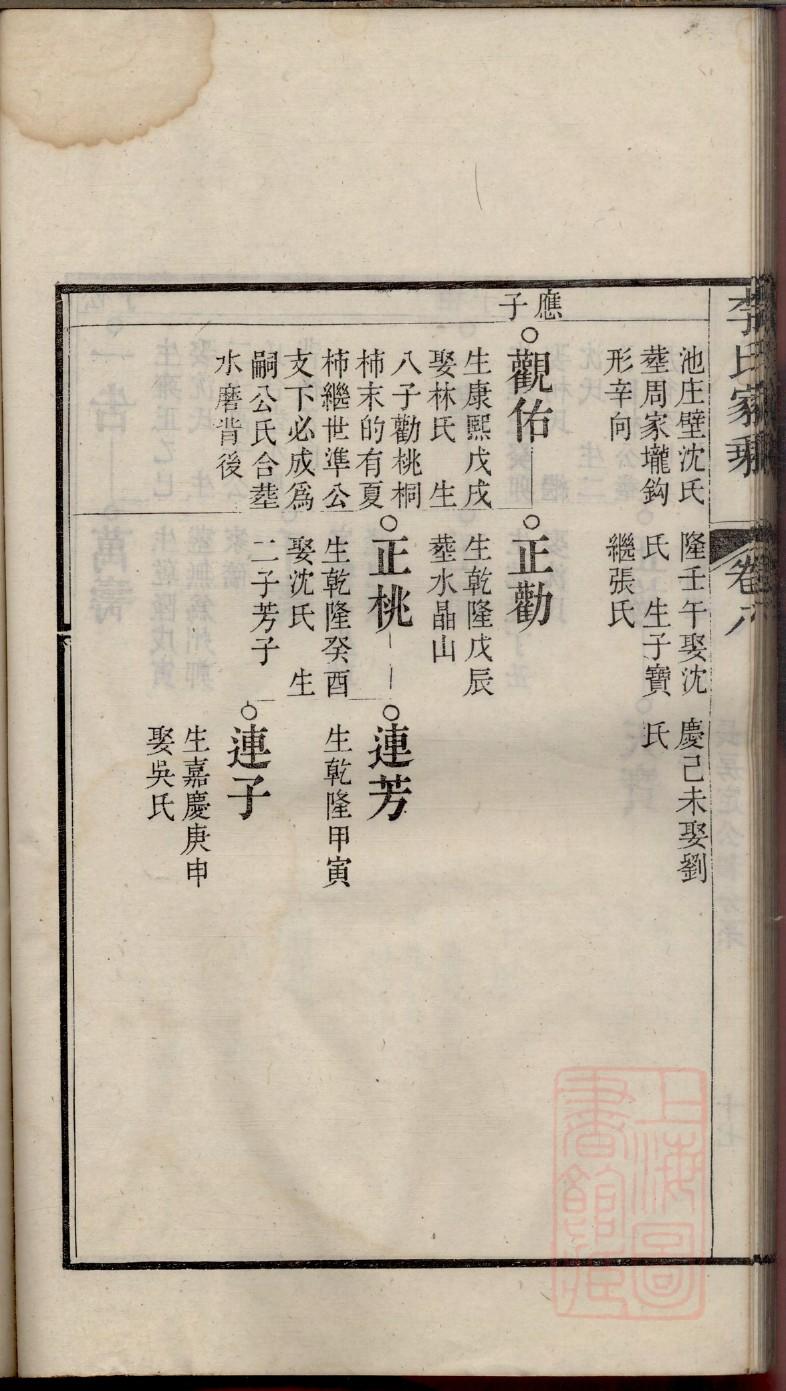 李氏家乘
卷八
池庄壁沈氏
塟周家壠鈎
形辛向
隆壬午娶沈
氏　生子寶
繼張氏
慶己未娶劉
氏
應
子
○觀佑
生康熙戊戌
娶林氏　生
八子勸桃桐
柿末的有夏
柿繼世準公
支下必成爲
嗣公氏合塟
水磨背後
○正勸
生乾隆戊辰
塟水晶山
○正桃
生乾隆癸酉
娶沈氏　生
二子芳子
○連芳
生乾隆甲寅
○連子
生嘉慶庚申
娶吳氏
上海圖
書館藏